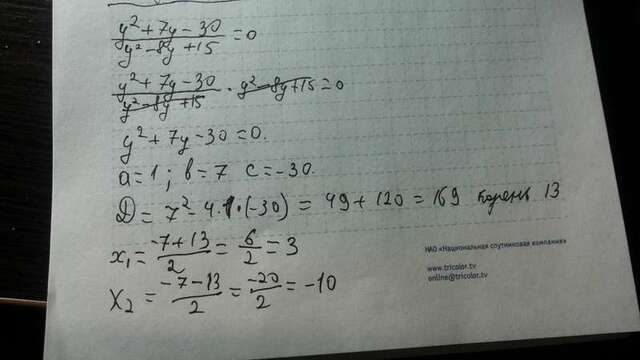 (y² + 7y − 30)/(y² − 8y + 15) = 0
(y² + 7y − 30)/(y² − 8y + 15) · y² − 8y + 15 = 0
y² + 7y − 30 = 0.
a = 1 ; b = 7 c = −30.
D = 7² − 4·1·(−30) = 49 + 120 = 169 корень 13
x₁ = (−7 + 13)/2 = 6/2 = 3
НАО «Национальная спутниковая компания»
www.tricolor.tv
online@tricolor.tv
X₂ = (−7 − 13)/2 = −20/2 = −10